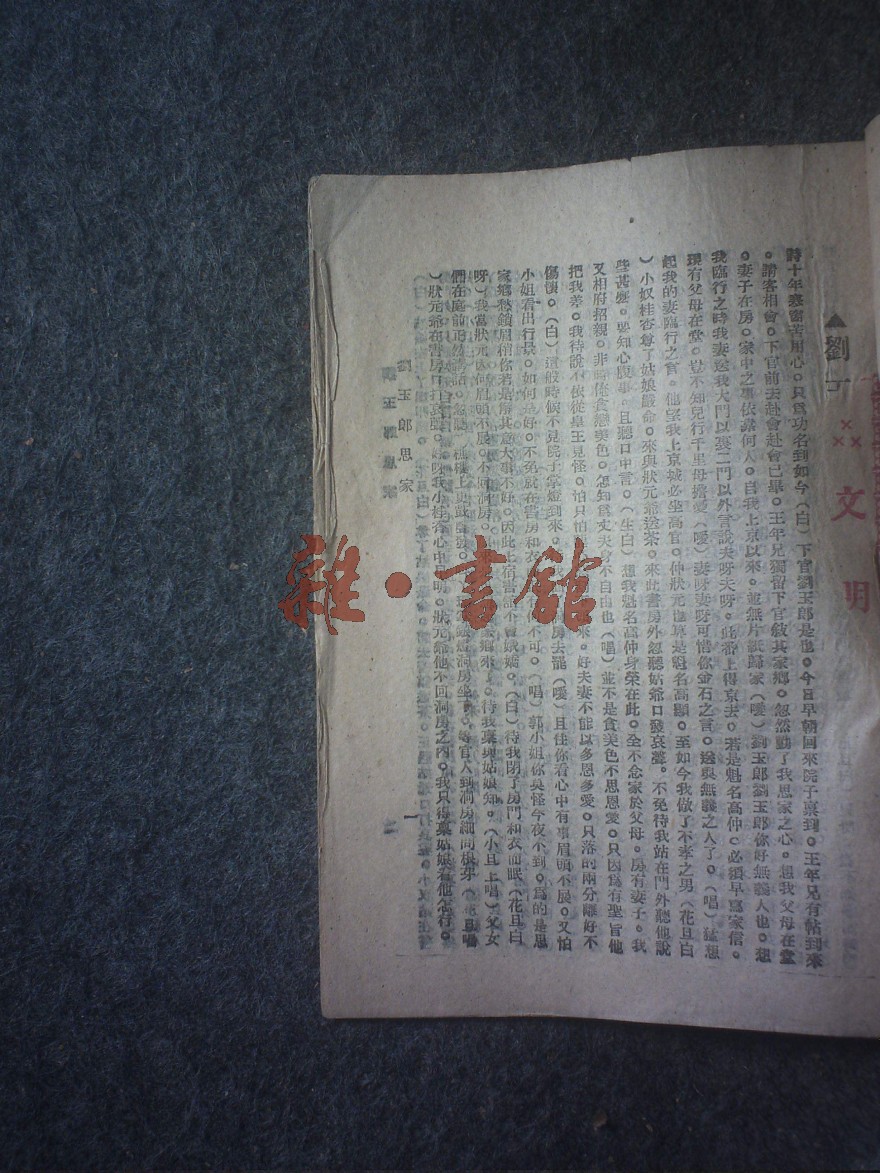 文明
▲劉
詩十年寒窗苦用心。只爲功名到如今（白）下官劉玉郎是也。今日早朝回來院子禀到。王年兄有帖到來
。請客相會。下官前去赴會赴會已畢。王年兄獨留下官敘其家鄉。忽然動了我思家之心。想我父母在堂
。妻子在房。家中之事依靠何人。自我上京以來。並無片紙歸家（嗳）劉玉郎劉玉郎你好無義人也。想
我臨行之時我妻送我大門以裏二門以外言說夫呀夫呀。此番上得京去。若是魁名高仲。必須早寫家信。
現有父母在堂。豈不知兒行千里母擔憂（嗳）妻呀妻呀可惜你金石之言。送與無義之人了。（唱）猛想
起我的妻臨行之言。他望我上京城必坐高官。仲狀元也算是魁名高顯。至如今我做了不孝之男（花旦白
）小奴桂杏尊了姑娘嚴命。來與狀元爺送茶。來此書房外忽聽姑爺口發哀聲。不免待我站在門外聽他說
些甚麽。要知心腹事。且聽口中言。（生白）想我魁名高仲身榮在此。全不念家於父母。房有妻子。我
又相府招親。非時係貪戀美色。怎知爲丈夫身不自由也（唱）並不是貪美色不思恩愛。只因爲有聖旨他
把我差。我待說不依從皇王見怪。怕只怕 來。好夫妻不能以多恩多愛。只落的兩分離好不
傷懷。（白）這般時候不見院子掌燈到來。 房去罷（嗳）且住你看心中有事眉頭不展。又怕
小姐看出行景。如何是好。不免就在書房和衣 不可。（唱）郭小姐你莫怪今夜不到。爲的是思
家鄉愁鎖眉梢你若是解其意大事不好。因此上宿書館不會娥嬌。（白）待我閉了房門和衣而眠（花旦白
呀）我當狀元因何眉頭不展。不回洞房。 家鄉來了。待我禀與姑娘知。（小旦上唱）父女
們在庭前正然講話。忽聽 樓上更鼓 洞房坐下。等官人到洞房細問根芽（花旦唱
）狀元爺在書房口打哀聲。 我小桂杏心中早明。狀元爺他不回洞房之內。我只得禀姑娘看他怎行。
劉玉郎思家
一
雜·書館